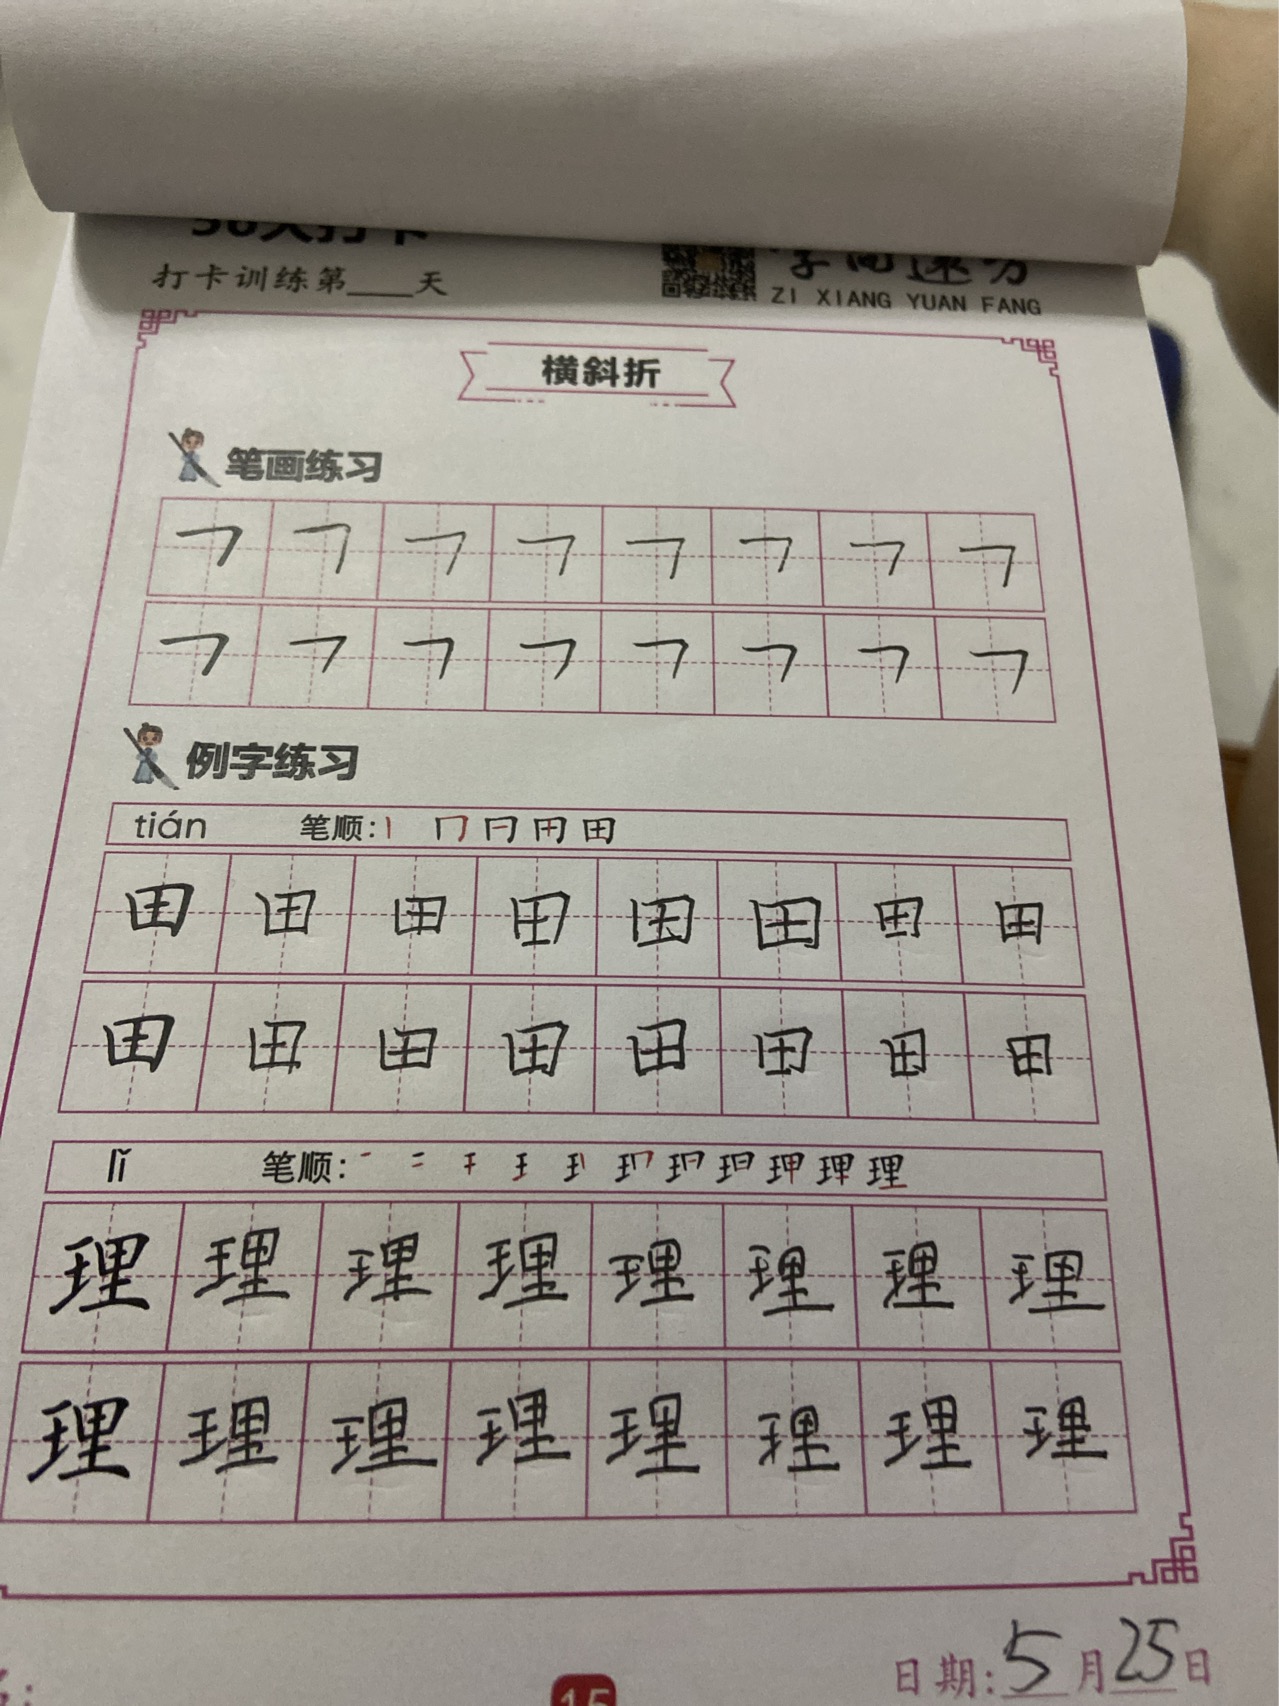 打卡训练第____天
ZI XIANG YUAN FANG
横斜折
笔画练习
㇇ ㇇ ㇇ ㇇ ㇇ ㇇ ㇇ ㇇
㇇ ㇇ ㇇ ㇇ ㇇ ㇇ ㇇ ㇇
例字练习
tián 笔顺: 田
田 田 田 田 田 田 田 田
田 田 田 田 田 田 田 田
lǐ 笔顺: 理
理 理 理 理 理 理 理 理
理 理 理 理 理 理 理 理
日期: 5月25日
15